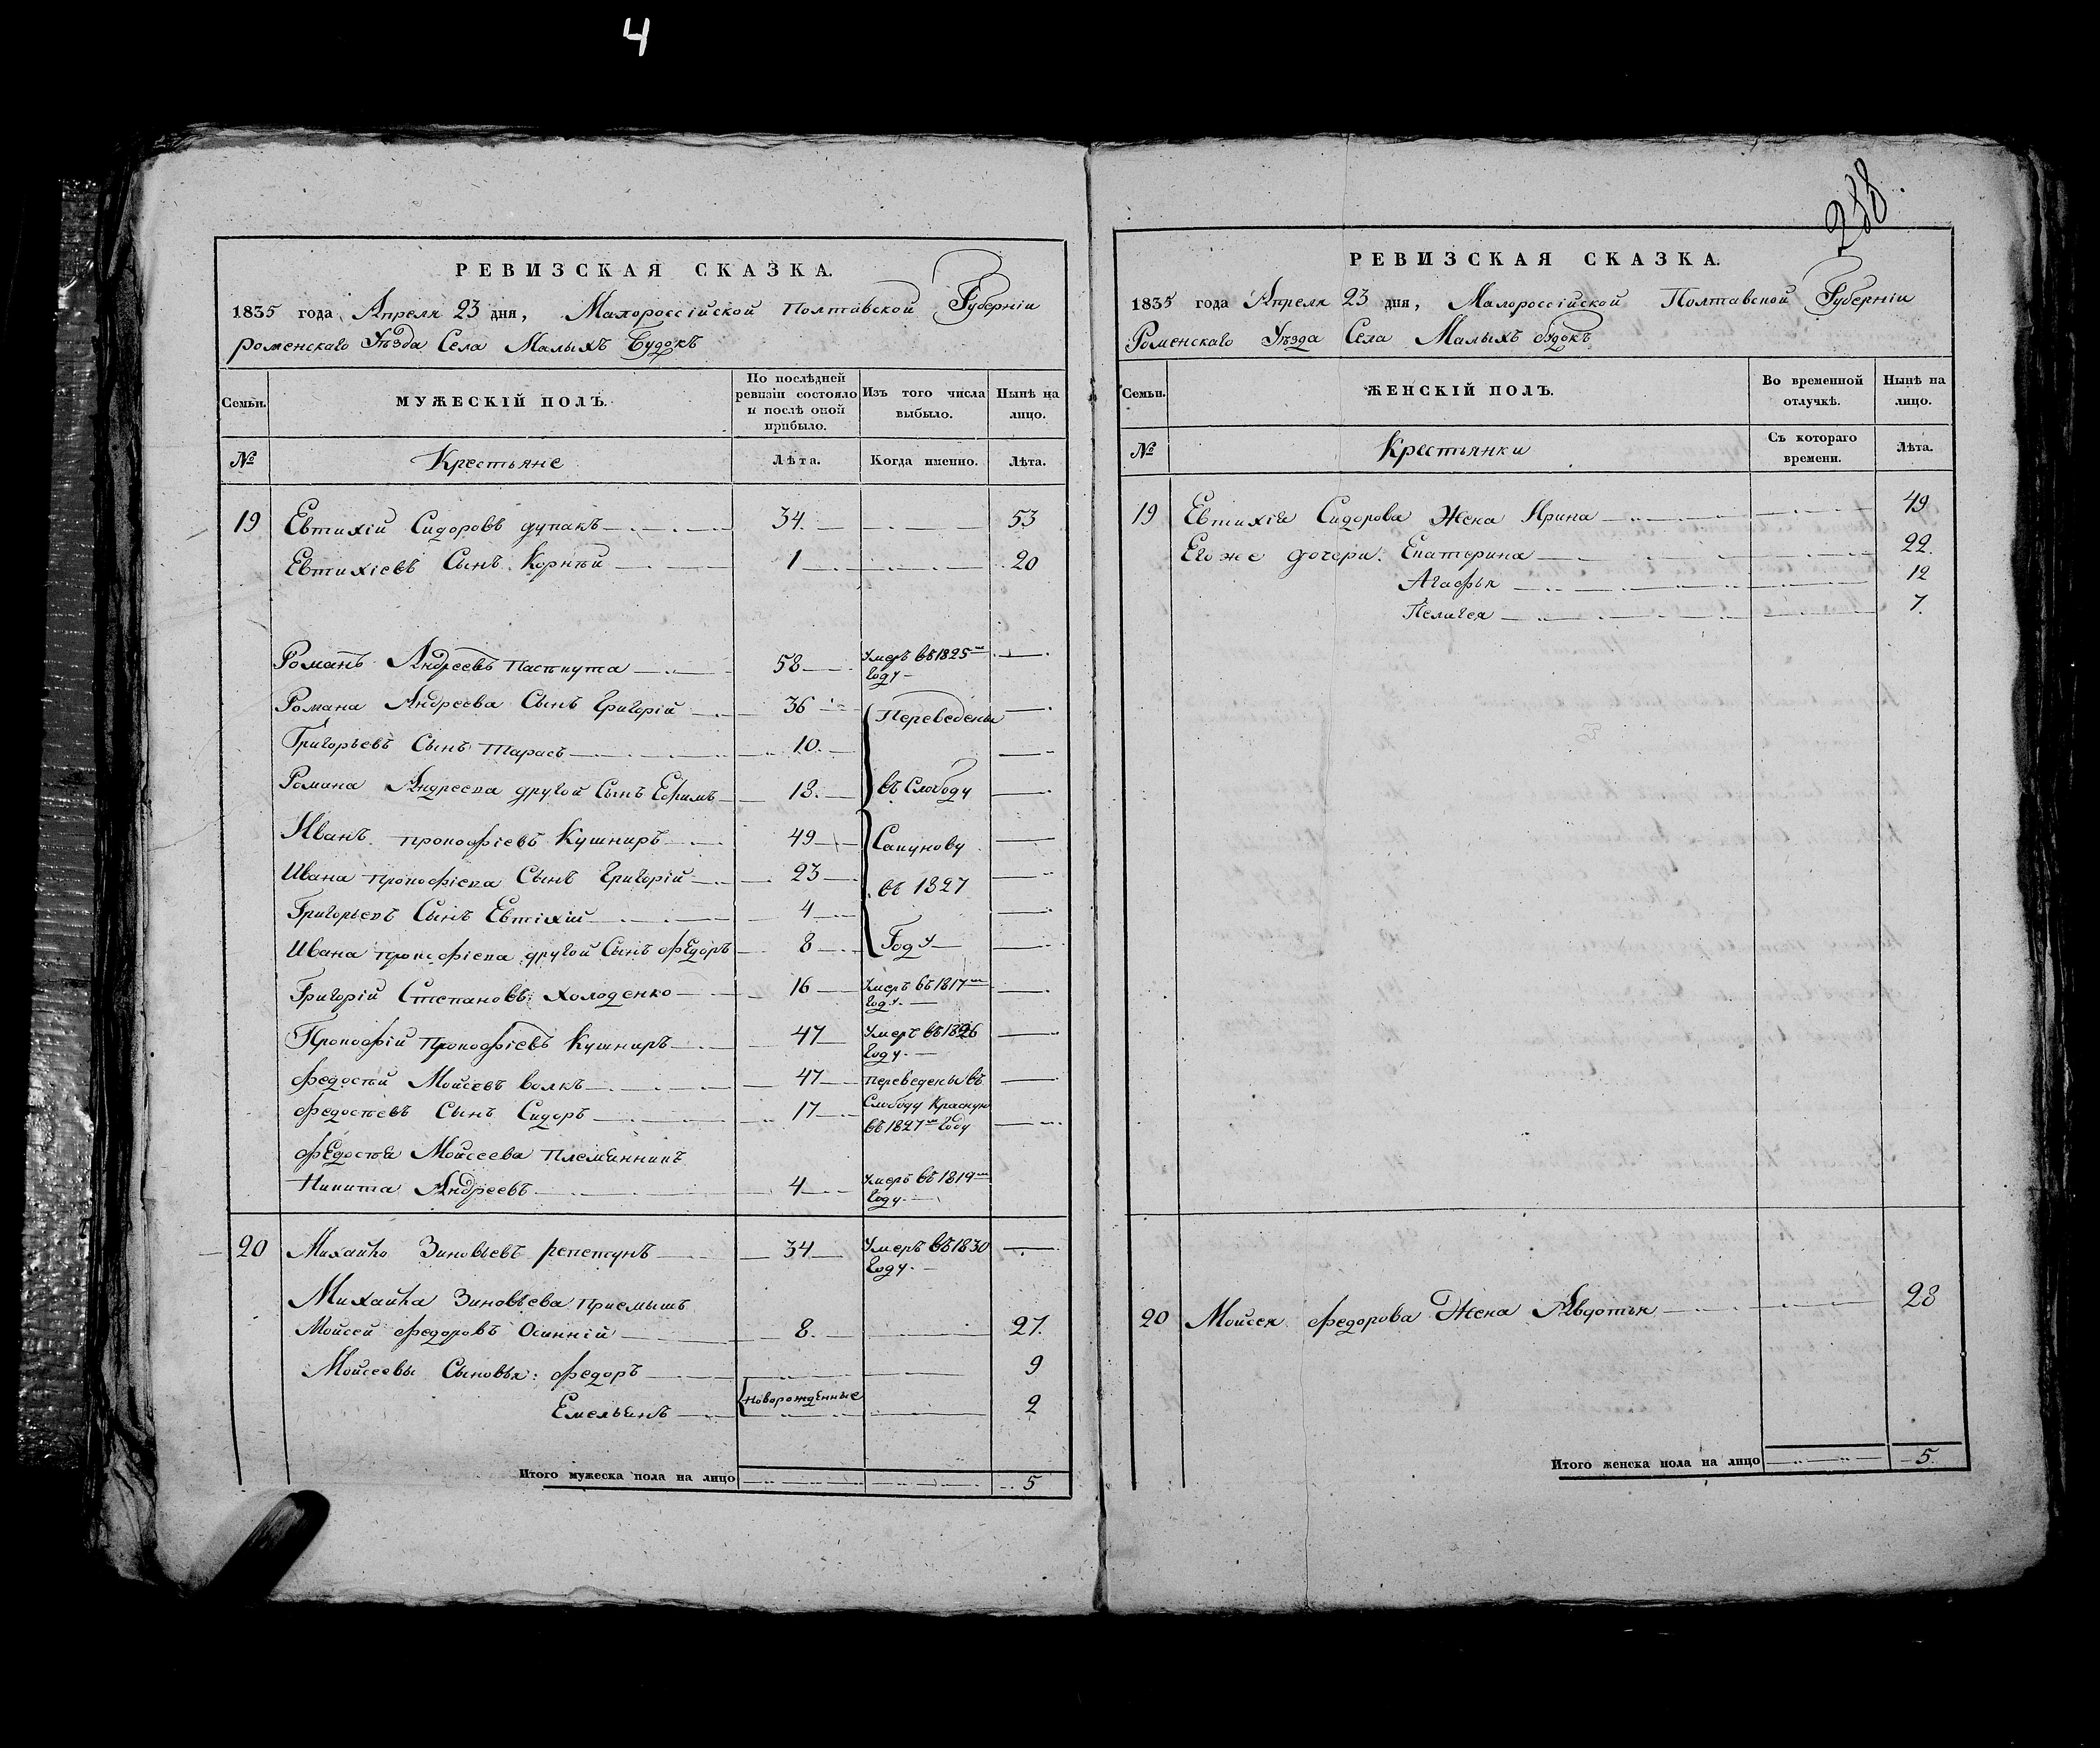 4
238.
РЕВИЗСКАЯ СКАЗКА.
1835 года Апреля 23 дня, Малороссійской Полтавской Губерніи
Роменскаго Уѣзда Села Малыхъ Будокъ
Семьи.
МУЖЕСКІЙ ПОЛЪ.
По послѣдней ревизіи состояло и послѣ оной прибыло.
Изъ того числа выбыло.
Нынѣ на лицо.
№ Крестьяне Лѣта. Когда именно. Лѣта.
19 Евтихій Сидоровъ дупакъ 34. 53
Евтихіевъ Сынъ Корнѣй 1 20
Романъ Андреевъ 58 Умеръ въ 1825го
году
Романа Андреева Сынъ Григорій 36 Переведены
Григорьевъ Сынъ Тарасъ 10.
Романа Андреева другой Сынъ Ефимъ 18. въ Слободу
Иванъ прокофіевъ Кушниръ 49 Сапунову
Ивана прокофіева Сынъ Григорій 23 въ 1827
Григорьевъ Сынъ Евтіхій 4
Ивана прокофіева другой Сынъ Федоръ 8 Году
Григорій Степановъ Холоденко 16 Умеръ въ 1817го
году.
Прокофій Прокофіевъ Кушниръ 47 Умеръ въ 1826
году.
Федосѣй Моисеевъ волкъ 47 переведены въ
Федосѣевъ Сынъ Сидоръ 17 Слободу Красную
въ 1827м Году
Федосѣя Моисеева Племянникъ
Никита Андреевъ 4 Умеръ въ 1819го
году.
20 Михайло Зиновьевъ репетунъ 34 Умеръ въ 1830
году.
Михайла Зиновьева приемышъ
Мойсей Федоровъ Осинній 8. 27.
Моисеевы Сыновья: Федоръ 9
новорожденные
Емельянъ 2
Итого мужеска пола на лицо 5
РЕВИЗСКАЯ СКАЗКА.
1835 года Апреля 23 дня, Малороссійской Полтавской Губерніи
Роменскаго Уѣзда Села Малыхъ Будокъ
Семьи.
ЖЕНСКІЙ ПОЛЪ.
Во временной отлучкѣ.
Нынѣ на лицо.
№ Крестьянки Съ котораго времени. Лѣта.
19 Евтихія Сидорова Жена Ирина 49
Его же дочери: Екатерина 22.
Агафья 12
Пелагея 7.
20 Моисея Федорова Жена Авдотья 28
Итого женска пола на лицо 5.